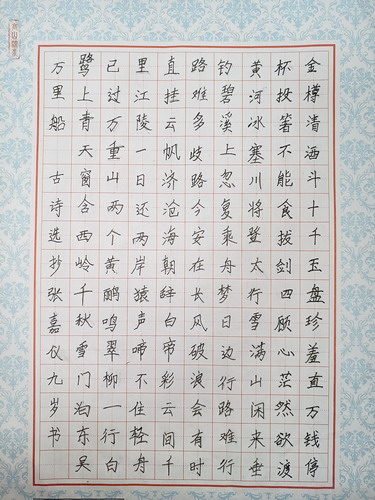 金樽清酒斗十千玉盘珍羞直万钱停
杯投箸不能食拔剑四顾心茫然欲渡
黄河冰塞川将登太行雪满山闲来垂
钓碧溪上忽复乘舟梦日边行路难行
路难多歧路今安在长风破浪会有时
直挂云帆济沧海朝辞白帝彩云间千
里江陵一日还两岸猿声啼不住轻舟
已过万重山两个黄鹂鸣翠柳一行白
鹭上青天窗含西岭千秋雪门泊东吴
万里船 古诗选抄张嘉仪九岁书